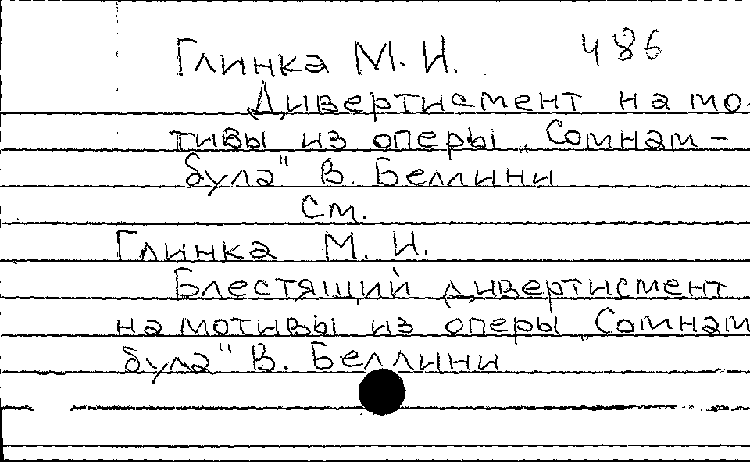 Глинка М. И. 486
Дивертисмент на мо-
тивы из оперы „Сомнам-
була" В. Беллини
См.
Глинка М. И.
Блестящий дивертисмент
на мотивы из оперы „Сомнам
була" В. Беллини